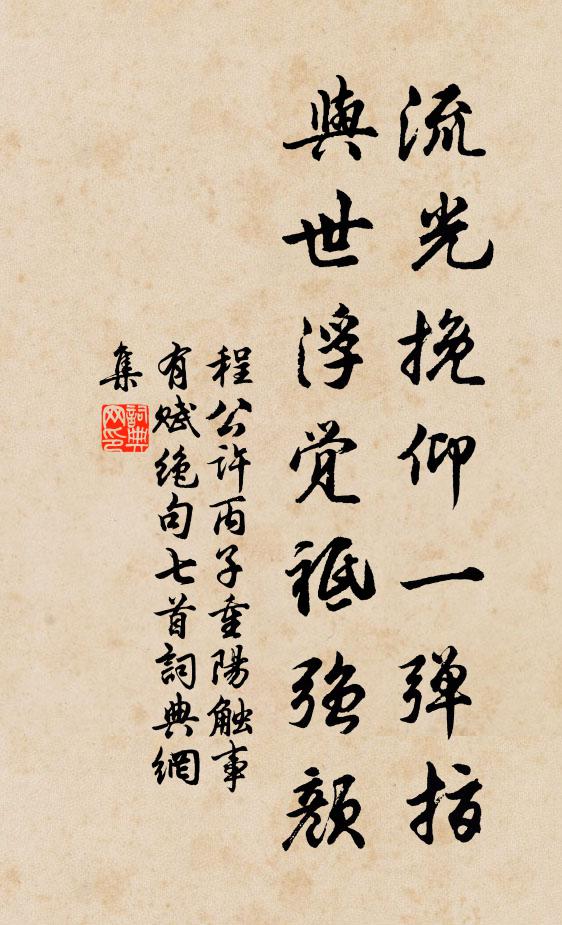 流光挽仰一弹指
與世浮觉祗强顔
程公許丙子重陽触事
有赋絶句七首詞典網
集
詞典网印